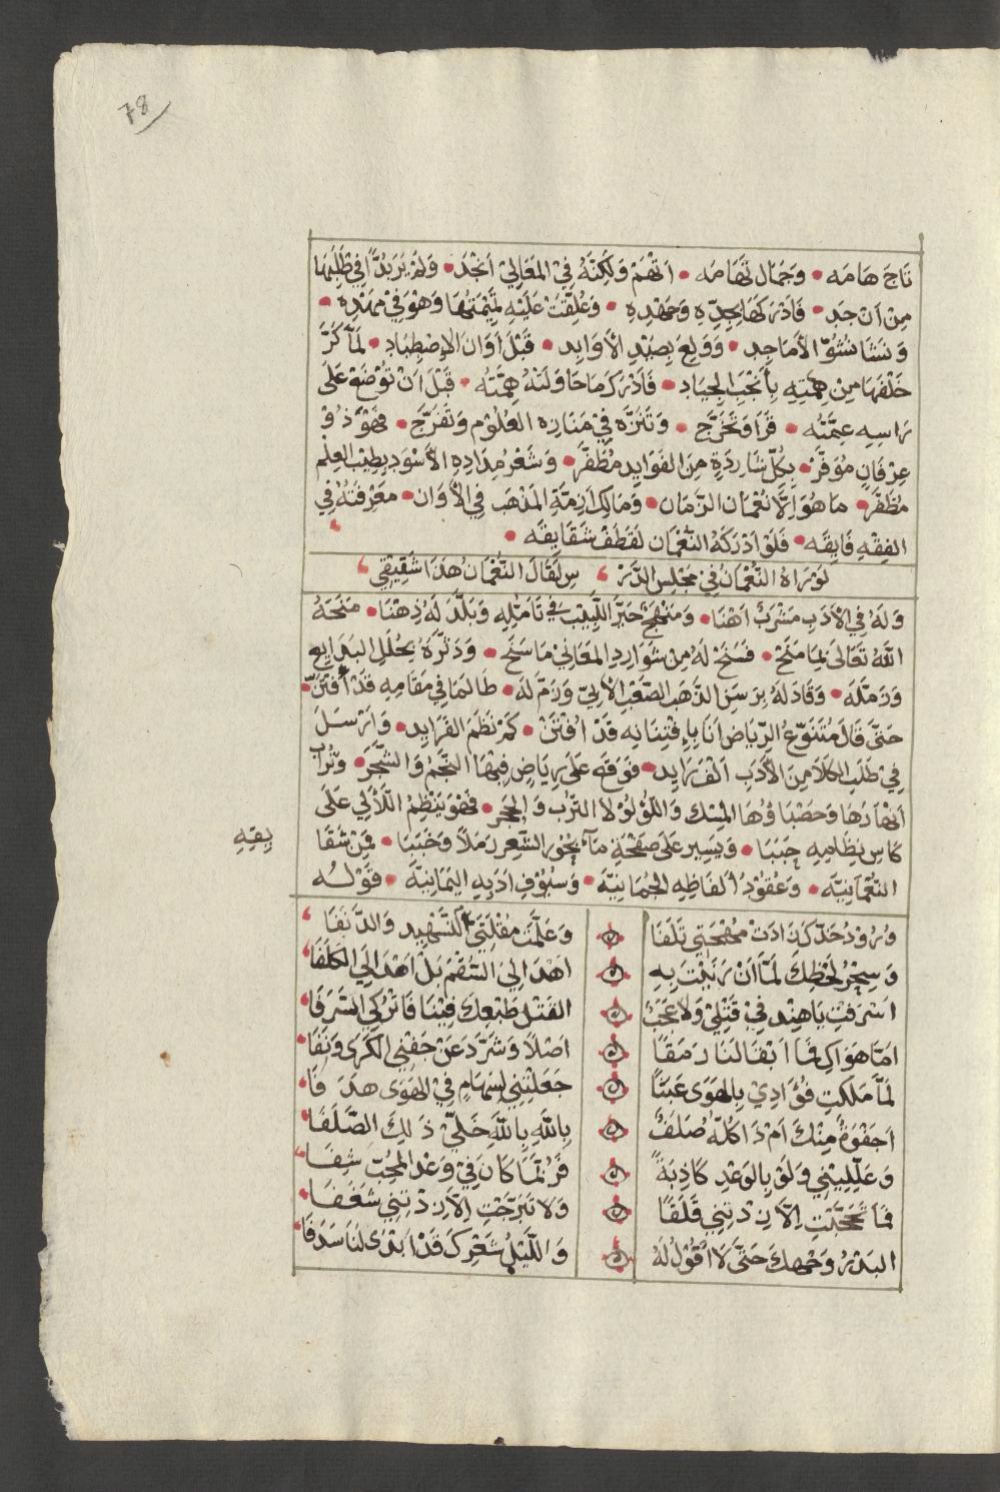 78
تَاجَ هَامَه • وَجَمَال تَهَامَه • اَتْهَمَ وَلَكِنَّهُ فِي المَعَالِي اَنْجَدَ • وَلَمْ يَرَ بُدًّا فِي طَلَبِهَا
مِنْ اَنْ جَد • فَاَدْرَكَهَا بِجِدِّهِ وَجَهْدِهِ • وَعُلِّقَتْ عَلَيْهِ تَمِيْمَتُهَا وَهْوَ فِيْ مَهْدِهِ •
وَنَشَا نُشُوّ الأَمَاجِد • وَوَلِعَ بِصَيْدِ الأَوَابِد • قَبْلَ اَوَانِ الاِصْطِيَادِ • لَمَّا كَرَّ
خَلْفَهَا مِنْ هِمَّتِهِ بِاَنْجَبِ الجِيَادِ • فَاَدْرَكَ مَا حَاوَلَتْهُ هِمَّتُه • قَبْلَ اَنْ تُوْضَعَ عَلَى
رَاسِهِ عِمَّتُه • قَرَا وَتَخَرَّج • وَتَنَزَّه فِيْ مَنَازِه العُلُوْمِ وَتَفَرَّج • فَهْوَ ذُوْ
عِرْفَانٍ مُوَفَّر • بِكُلِّ شَارِدَةٍ مِنَ الفَوَايِدِ مُظَفَّر • وَشَعْرُ مِدَادِهِ الأَسْوَد بِطِيْبِ العِلْمِ
مُظَفَّر • مَا هُوَ اِلَّا نُعْمَان الزَّمَان • وَمَالِكُ اَزِمَّةِ المَذْهَبِ فِي الأَوَان • مَعْرِفَتُهُ فِي
الفِقْهِ فَايِقَه • فَلَوْ اَدْرَكَهُ النُّعْمَان لَقَطَفَ شَقَايِقَه •
لَوْ رَاهُ النُّعْمَانُ فِيْ مَجْلِسِ الدَّرْ سِ لَقَالَ النُّعْمَانُ هَذَا شَقِيْقِي
وَلَهُ فِي الأَدَبِ مَشْرَبٌ اَهْنَا • وَمَنْهَجٌ حَيَّرَ اللَّبِيْبَ فِي تَامُّلِهِ وَبَلَّدَ لَهُ ذِهْنَا • مَنَحَهُ
اللّهُ تَعَالَى بِمَا مَنَحْ • فَسَنَحْ لَهُ مِنْ شَوَارِدِ المَعَانِيْ مَا سَنَح • وَدَثَّرَهُ بِحُلَلِ البَدَايِعِ
وَزَمَّلَه • وَقَادَ لَهُ بِرَسَنِ الذَّهَبِ الصَّعْبَ الأَبِيّ وَزَمَّ لَه • طَالَمَا فِيْ مَقَامِهِ قَدْ اَفْتَنّ •
حَتَّى قَالَ مُتَنَوِّعُ الرِّيَاضِ اَنَا بِافْتِنَانِه قَدْ اُفْتَتَنْ • كَمْ نَظَمَ الفَرَايِد • وَاَرْسَلَ
فِيْ طَلَبِ الكَلَا مِنَ الأَدَبِ اَلْفَ رَايِد • فَوَقَعَ عَلَى رِيَاضٍ فِيْهَا النَّجْمُ وَالشَّجَر • وَتُرَابُ
اَنْهَارِهَا وَحَصْبَاؤُهَا المِسْك وَاللُّوْلُوْ لَا التُّرْب وَالحَجَر • فَهْوَ يَنْظِمُ اللَّآلِي عَلَى
كَاسِ نِظَامِهِ حَبَبَا • وَيَسِيْر عَلَى صَفْحَةِ مَآءِ بُحُوْرِ الشِّعِر رَمَلاً وَخَبَبَا • فَمِنْ شَقَا
بِقِهِ
النُّعْمَانِيَّه • وَعُقُوْدِ اَلفَاظِهِ الجُمَانِيَّة • وَسُيُوْفِ اَدَبِهِ اليَمَانِيَّة • قَوْلُه
وُرُوْدُ خَدِّكَ زَادَتْ مُهْجَتِي تَلَفَا وَعَلَّمَتْ مُقْلَتِي التَّسْهِيْد وَالدَّنَفَا
وَسِحْرُ لَحْظِكَ لَمَّا اَنْ رَنَيْتَ بِهِ اَهْدَا اِلَيَّ السُّقْمَ بَلْ اَهْدَا لِيَ الكَلَفَا
اَسْرَفْتِ يَا هِنْد فِيْ قَتْلِيْ وَلَا عَجَبٌ القَتْل طَبْعكِ فِيْنَا فَاتْرُكِي السَّرَفَا
اَمَّا هَوَاكِ فَمَا اَبْقَا لَنَا رَمَقَا اَصْلاً وَشَرَّدَ عَنْ جَفْنِي الكَرَى وَنَفَا
لَمَّا مَلَكْتِ فُؤَادِيْ بِالهَوَى عَبَثاً جَعَلْتِنِي لِسِهَامِ فِي الهَوَى هَدَفَا
اَجَفْوَةٌ مِنْكَ اَمْ ذَا كُلُّه صَلَفٌ بِاللّهِ بِاللّهِ خَلِّيْ ذَلِكَ الصَّلَفَا
وَعَلِّلِيْنِي وَلَوْ بِالوَعْدِ كَاذِبَةً فَرُبَّمَا كَانَ فِيْ وَعْدِ المُحِبِّ شِفَا
فَمَا تَحَجَّبْتِ اِلَّا زِدْتِنِي قَلَقَا وَلَا تَبَرَّجْتِ اِلَّا زِدْتِنِي شَغَفَا
البَدْرُ وَجْهكَ حَتَّى لَا اَقُوْلُ لَهُ وَاللَّيْلُ شَعْرك قَدْ اَبْدَى لَنَا سَدَفَا